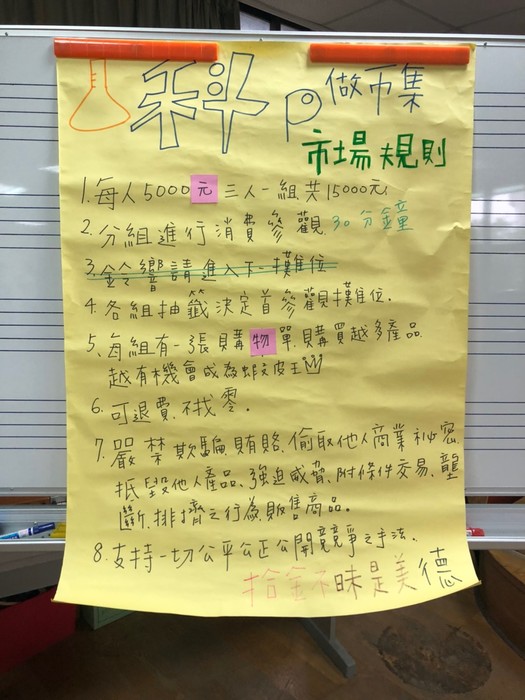 科p做市集
市場規則
1.每人5000元三人一組共15000元.
2.分組進行消費參觀30分鐘
3.鈴響請進入下一攤位
4.各組抽籤決定首參觀攤位.
5.每組有一張購物單,購買越多產品
越有機會成為蝦皮王
6.可退費.不找零.
7.嚴禁欺騙、賄賂、偷取他人商業祕密、
抵毀他人產品、強迫威脅、附條件交易、壟
斷、排擠之行為販售商品。
8.支持一切公平公正公開競爭之手法.
拾金不昧是美德